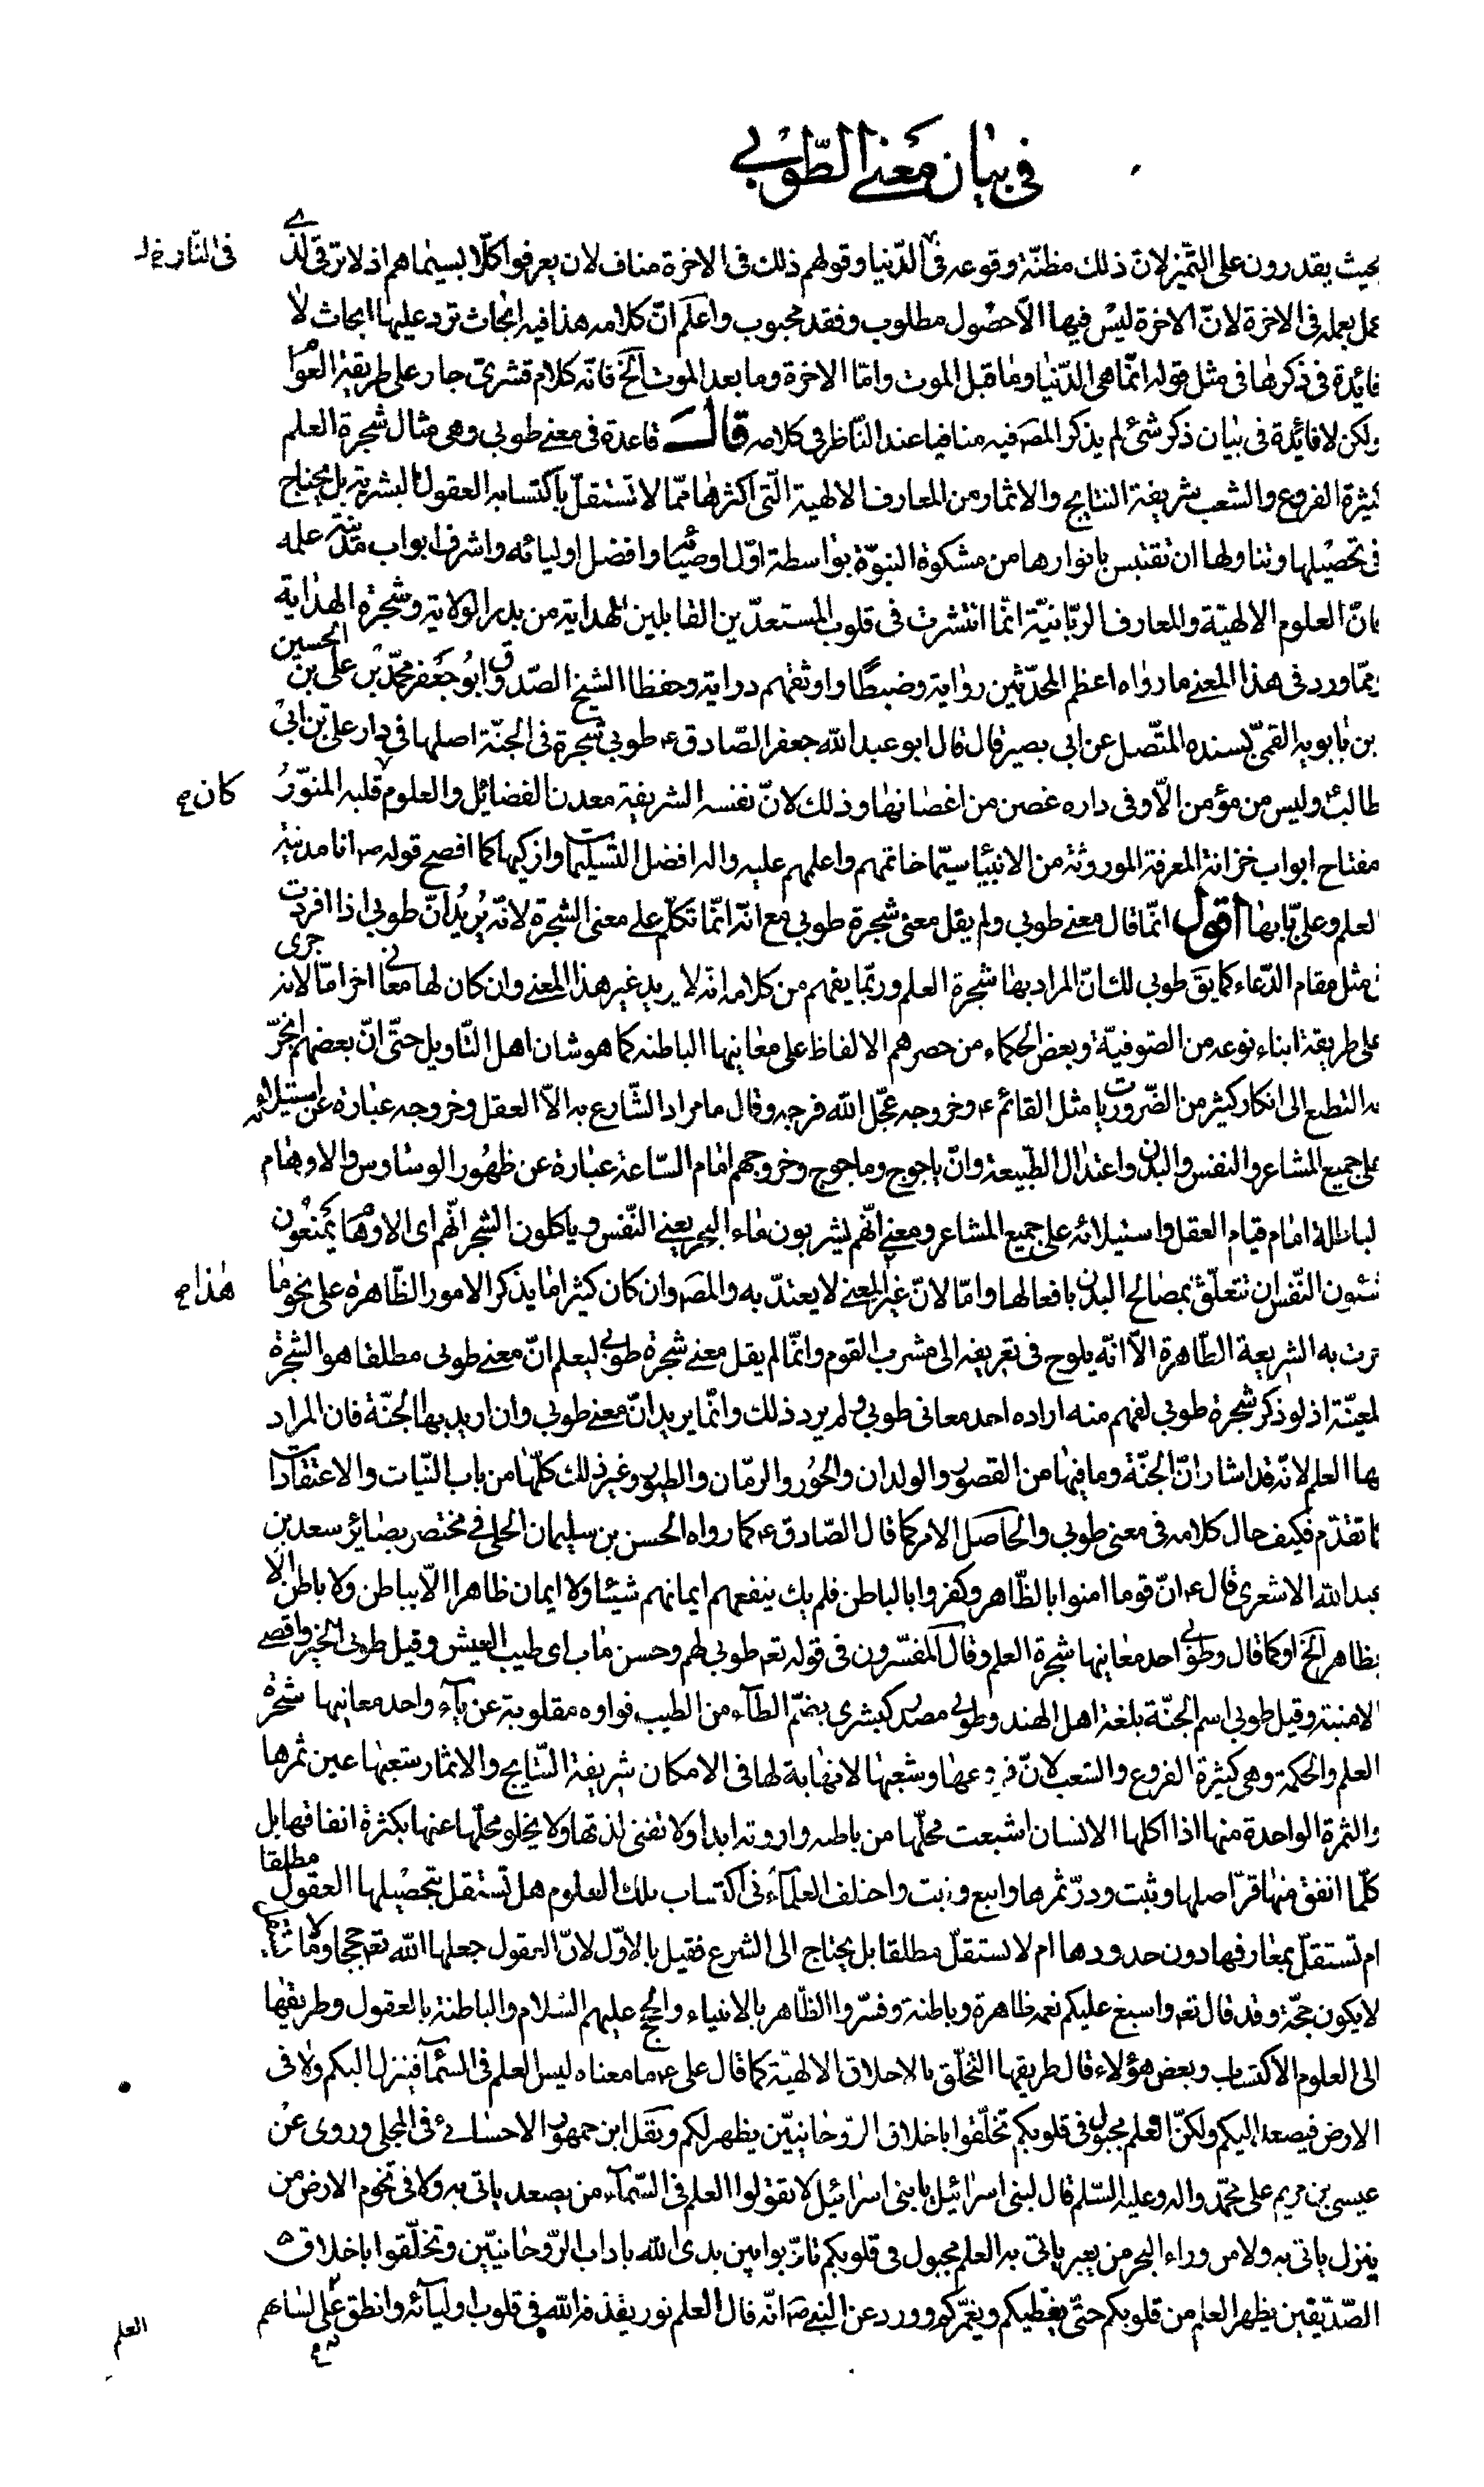 في بيان معنى الطّوبى
بحيث يقدرون على التّميز لانّ ذلك مظنّة وقوعه فى الدّنيا وقولهم ذلك فى الاخرة مناف لان يعرفوا كلّا بسيماهم اذ لا ترقّى لذى
فى النّار خ‌ل
عمل بعمله فى الاخرة لانّ الاخرة ليس فيها الّا حصول مطلوب وفقد محبوب واعلم انّ كلامه هذا فيه ابحاث ترد عليها ابحاث لا
فائدة فى ذكرها فى مثل قوله انّما هى الدّنيا وما قبل الموت وامّا الاخرة وما بعد الموت الخ فانّه كلام قشرى جار على طريقة العوام
ولكن لا فائدة فى بيان ذكر شئ لم يذكر المصـ فيه منافيا عند النّاظر فى كلامه قال قاعدة فى معنى طوبى وهى مثال شجرة العلم
كثيرة الفروع والشعب شريفة النتايج والاثمار من المعارف الالهية الّتى اكثرها ممّا لا تستقلّ باكتسابه العقول البشرية بل يحتاج
فى تحصيلها وتناولها ان تقتبس بانوارها من مشكوة النبوّة بواسطة اوّل اوصيائها وافضل اوليائه واشرف ابواب مدينة علمه
فانّ العلوم الالهيّة والمعارف الربّانيّة انّما انتشرت فى قلوب المستعدّين القابلين للهداية من بدر الولاية وشجرة الهداية
وممّا ورد فى هذا المعنى ما رواه اعظم المحدّثين رواية وضبطًا واوثقهم دراية وحفظا الشيخ الصّدوق ابو جعفر محمّد بن على بن الحسين
بن بابويه القمىّ بسنده المتّصل عن ابى بصير قال قال ابو عبد الله جعفر الصّادق ع طوبى شجرة فى الجنّة اصلها فى دار على بن ابى
طالب ع وليس من مؤمن الّا وفى داره غصن من اغصانها وذلك لانّ نفسه الشريفة معدن الفضائل والعلوم قلبه المنوّر
كان م
مفتاح ابواب خزانة المعرفة الموروثة من الانبيا سيّما خاتمهم واعلمهم عليه واله افضل التسليمات وازكيها كما افصح قوله ص انا مدينة
العلم وعلىّ بابها اقول انّما قال معنى طوبى ولم يقل معنى شجرة طوبى مع انّه انّما تكلّم على معنى الشجرة لانّه يريد انّ طوبى اذا افردت
فى مثل مقام الدّعاء كما يق طوبى لك انّ المراد بها شجرة العلم وربّما يفهم من كلامه انه لا يريد غير هذا المعنى وان كان لها معانى اخر امّا لانه جرى
على طريقة ابناء نوعه من الصّوفيّة وبعض الحكماء من حصرهم الالفاظ على معانيها الباطنه كما هو شان اهل التّاويل حتّى انّ بعضهم انجرّ
به التطبع الى انكار كثير من الضّروريات مثل القائم ع وخروجه عجّل الله فرجه وقال ما مراد الشّارع به الّا العقل وخروجه عبارة عن استيلائه
على جميع المشاعر والنفس والبدن واعتدال الطّبيعة وانّ ياجوج وماجوج وخروجهم امام السّاعة عبارة عن ظهور الوساوس والاوهام
الباطلة امام قيام العقل واستيلائه على جميع المشاعر ومعنى انّهم يشربون ماء البحر يعنى النّفس وياكلون الشجر انّهم اى الاوهام يمنعون
شئون النّفس ان تتعلّق بمصالح البدن بافعالها وامّا لانّ غير المعنى لا يعتدّ به والمصـ وان كان كثيرا ما يذكر الامور الظّاهرة على نحو ما
هذا م
جرت به الشريعة الطّاهرة الّا انّه يلوح فى تعريفه الى مشرب القوم وانّما لم يقل معنى شجرة طوبى ليعلم انّ معنى طوبى مطلقا هو الشجرة
المعيّنة اذ لو ذكر شجرة طوبى لفهم منه اراده احد معانى طوبى ولم يرد ذلك وانّما يريد انّ معنى طوبى وان اريد بها الجنّة فان المراد
بها العلم لانّه قد اشار انّ الجنّة وما فيها من القصور والولدان والحور والرمّان والطيور وغير ذلك كلّها من باب النّيات والاعتقادات
كما تقدّم فكيف حال كلامه فى معنى طوبى والحاصل الامر كما قال الصّادق ع كما رواه الحسن بن سليمان الحلى فى مختصر بصائر سعد بن
عبد الله الاشعرى قال ع انّ قوما امنوا بالظّاهر وكفروا بالباطن فلم يك ينفعهم ايمانهم شيئا ولا ايمان ظاهرا الّا بباطن ولا باطن الّا
بظاهر الخ او كما قال وطوبى احد معانيها شجرة العلم وقال المفسّرون فى قوله تعـ طوبى لهم وحسن ماب اى طيب العيش وقيل طوبى الخير واقصى
الامنية وقيل طوبى اسم الجنّة بلغة اهل الهند وطوبى مصدر كبشرى بضمّ الطآء من الطيب فواوه مقلوبة عن يآء واحد معانيها شجرة
العلم والحكمة وهى كثيرة الفروع والشعب لانّ فروعها وشعبها لا نهاية لها فى الامكان شريفة النّتايج والاثمار شعبها عين ثمرها
والثمرة الواحدة منها اذا اكلها الانسان اشبعت محلّها من باطنه واروته ابدا ولا تفنى لذتها ولا يخلو محلّها عنها بكثرة انفاقها بل
كلّما انفق منها قرّ اصلها وثبت ودرّ ثمرها واينع ونبت واختلف العلمآء فى اكتساب تلك العلوم هل تستقل بتحصيلها العقول مطلقا
ام تستقلّ بمعارفها دون حدودها ام لا تستقلّ مطلقا بل يحتاج الى الشرع فقيل بالاوّل لانّ العقول جعلها الله تعـ حججا وما
لا يكون حجّة وقد قال تعـ واسبغ عليكم نعمه ظاهرة وباطنة وفسّروا الظّاهر بالانبياء والحجج عليهم السّلام والباطنة بالعقول وطريقها
الى العلوم الاكتساب وبعض هؤلاء قال طريقها التخلّق بالاخلاق الالهيّة كما قال على ع ما معناه ليس العلم فى السّمآء فينزل اليكم ولا فى
الارض فيصعد اليكم ولكنّ العلم مجبول فى قلوبكم تخلّقوا باخلاق الرّوحانيّين يظهر لكم ونقل ابن جمهور الاحسائى فى المجلى وروى عن
عيسى بن مريم على محمّد واله وعليه السّلم قال لبنى اسرائيل يا بنى اسرائيل لا تقولوا العلم فى السّمآء من يصعد ياتى به ولا فى تخوم الارض من
ينزل ياتى به ولا من وراء البحر من يعبر ياتى به العلم مجبول فى قلوبكم تادّبوا بين يدى الله باداب الرّوحانيّين وتخلّقوا باخلاق
الصّدّيقين يظهر العلم من قلوبكم حتّى يغطيكم ويغمركم وورد عن النبى ص انّه قال العلم نور يقذفه الله فى قلوب اوليآئه وانطق على لسانهم
العلم